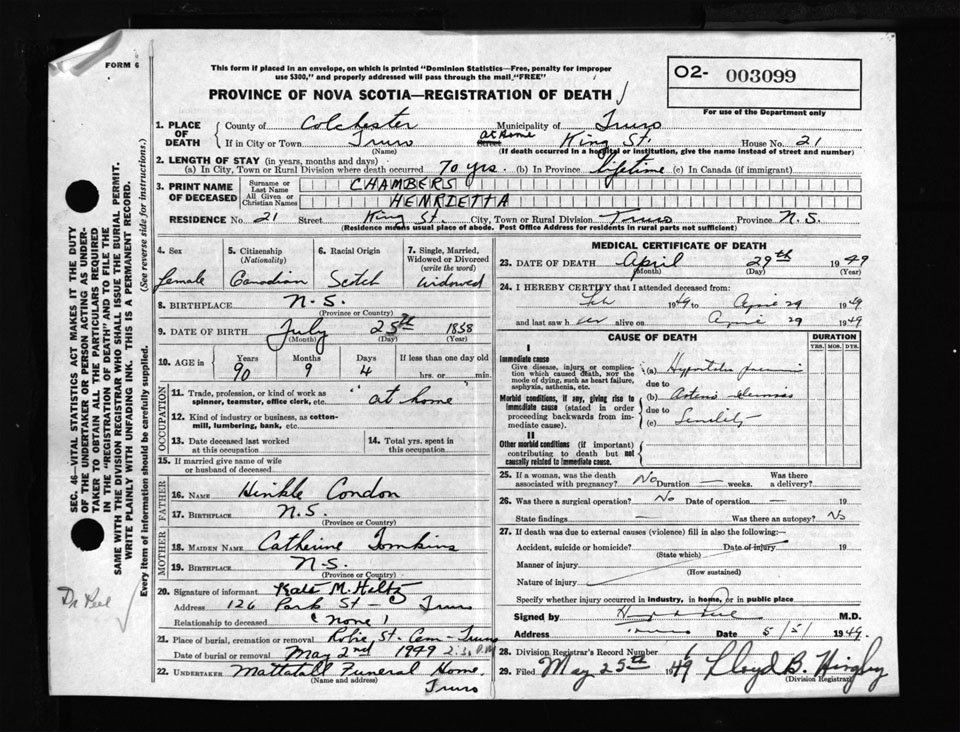 FORM 6
This form if placed in an envelope, on which is printed "Dominion Statistics—Free, penalty for improper
use $300," and properly addressed will pass through the mail "FREE"
O2- 003099
PROVINCE OF NOVA SCOTIA—REGISTRATION OF DEATH
For use of the Department only
1. PLACE OF DEATH
County of Colchester Municipality of Truro
If in City or Town Truro (Name) Street at Home King St. House No. 21
(If death occurred in a hospital or institution, give the name instead of street and number)
2. LENGTH OF STAY (in years, months and days)
(a) In City, Town or Rural Division where death occurred 70 yrs. (b) In Province lifetime (c) In Canada (if immigrant)
3. PRINT NAME OF DECEASED
Surname or Last Name CHAMBERS
All Given or Christian Names HENRIETTA
RESIDENCE No. 21 Street King St. City, Town or Rural Division Truro Province N.S.
(Residence means usual place of abode. Post Office Address for residents in rural parts not sufficient)
4. Sex female
5. Citizenship (Nationality) Canadian
6. Racial Origin Scotch
7. Single, Married, Widowed or Divorced (write the word) widowed
8. BIRTHPLACE N.S.
(Province or Country)
9. DATE OF BIRTH July 25th 1858
(Month) (Day) (Year)
10. AGE in Years 90 Months 9 Days 4 If less than one day old hrs. or min.
OCCUPATION
11. Trade, profession, or kind of work as spinner, teamster, office clerk, etc. "at home"
12. Kind of industry or business, as cotton-mill, lumbering, bank, etc.
13. Date deceased last worked at this occupation
14. Total yrs. spent in this occupation
15. If married give name of wife or husband of deceased
FATHER
16. NAME Hinkle Condon
17. BIRTHPLACE N.S.
(Province or Country)
MOTHER
18. MAIDEN NAME Catherine Tomkins
19. BIRTHPLACE N.S.
(Province or Country)
20. Signature of informant Kate M. Hiltz
Address 126 Park St — Truro
Relationship to deceased (none)
21. Place of burial, cremation or removal Robie St. Cem. Truro
Date of burial or removal May 2nd 1949 2:30 P.M
22. UNDERTAKER Mattatall Funeral Home,
(Name and address) Truro
MEDICAL CERTIFICATE OF DEATH
23. DATE OF DEATH April 29th 1949
(Month) (Day) (Year)
24. I HEREBY CERTIFY that I attended deceased from:
Feb 1949 to April 29 1949
and last saw her alive on April 29 1949
CAUSE OF DEATH
DURATION
YRS. MOS. DYS.
I
Immediate cause
Give disease, injury or complication which caused death, not the mode of dying, such as heart failure, asphyxia, asthenia, etc.
(a) Hypostatic
due to
Morbid conditions, if any, giving rise to immediate cause (stated in order proceeding backwards from immediate cause).
(b)
due to
(c) Senility
II
Other morbid conditions (if important) contributing to death but not causally related to immediate cause.
25. If a woman, was the death associated with pregnancy? No Duration — weeks. Was there a delivery?
26. Was there a surgical operation? No Date of operation — 19
State findings — Was there an autopsy? No
27. If death was due to external causes (violence) fill in also the following:—
Accident, suicide or homicide? Date of injury 19
(State which)
Manner of injury
(How sustained)
Nature of injury
Specify whether injury occurred in industry, in home, or in public place
Signed by M.D.
Address Truro Date 5/5/1949.
28. Division Registrar's Record Number
29. Filed May 25th 1949 Lloyd B. Hingley
(Division Registrar)
SEC. 46—VITAL STATISTICS ACT MAKES IT THE DUTY
OF THE UNDERTAKER OR PERSON ACTING AS UNDER-
TAKER TO OBTAIN ALL THE PARTICULARS REQUIRED
IN THE "REGISTRATION OF DEATH" AND TO FILE THE
SAME WITH THE DIVISION REGISTRAR WHO SHALL ISSUE THE BURIAL PERMIT.
WRITE PLAINLY WITH UNFADING INK. THIS IS A PERMANENT RECORD.
Every item of information should be carefully supplied. (See reverse side for instructions.)